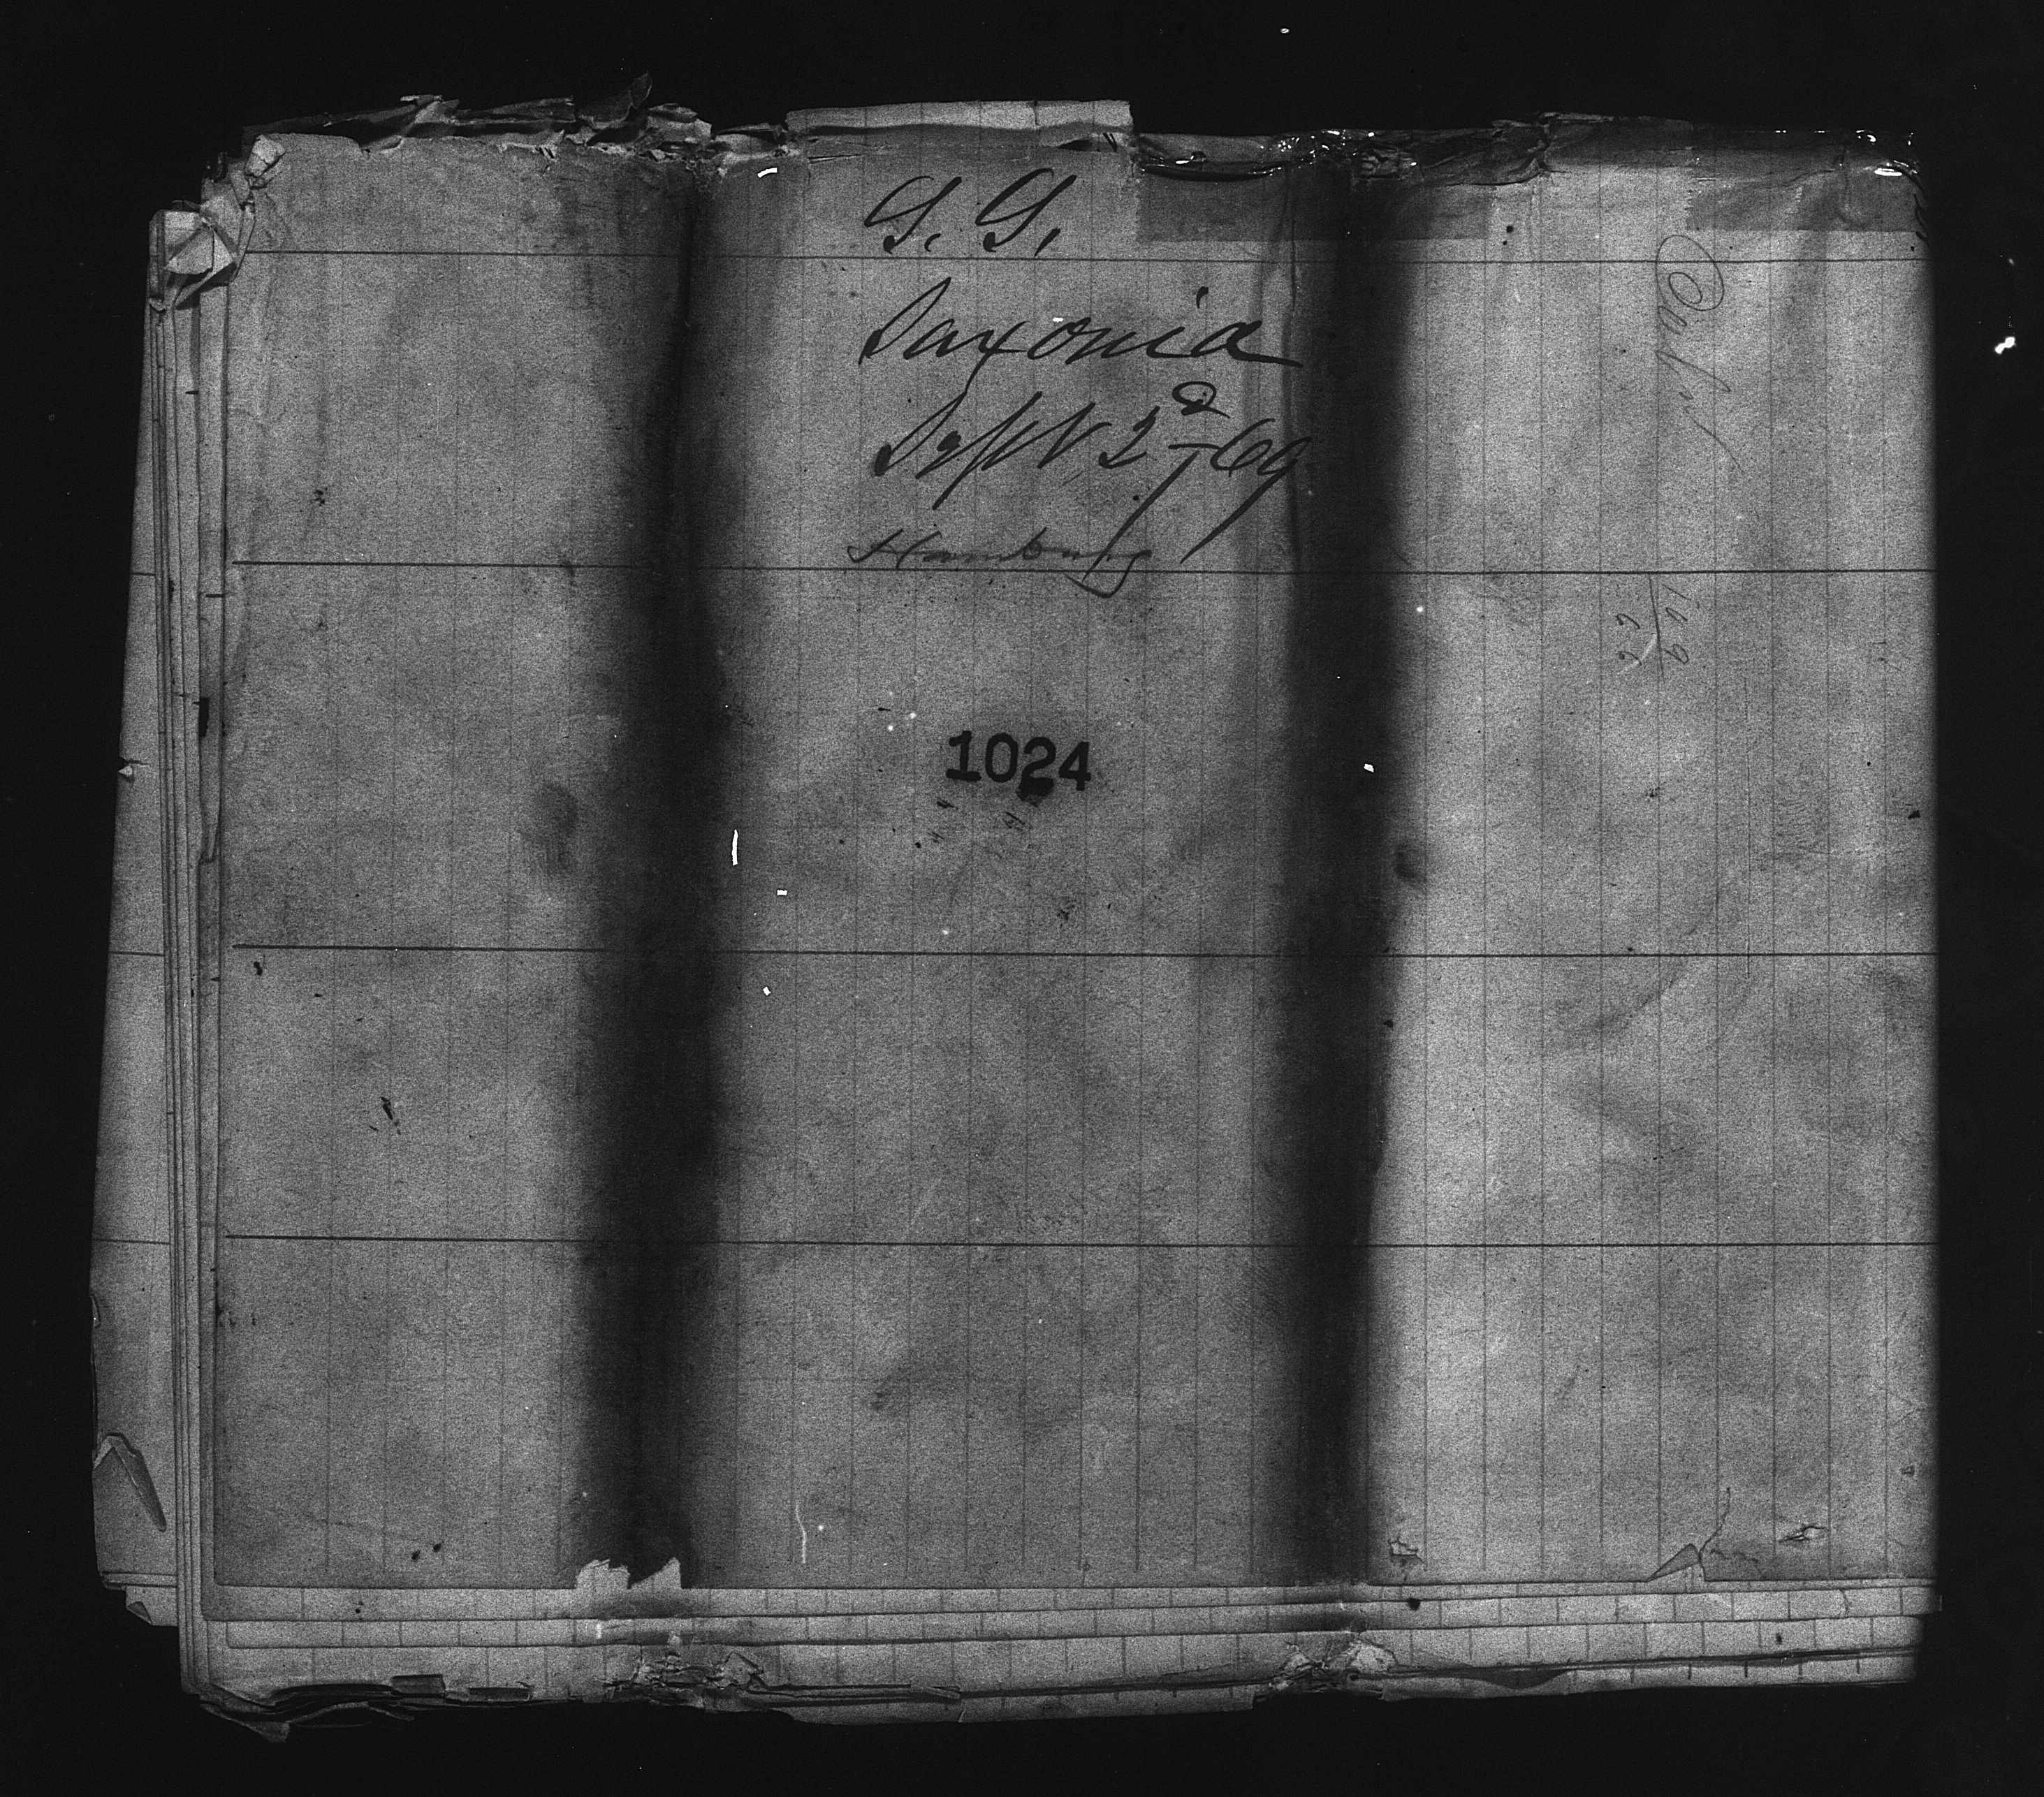 S. S.
Saxonia
Sept 2d/69
Hamburg
1024
109
66